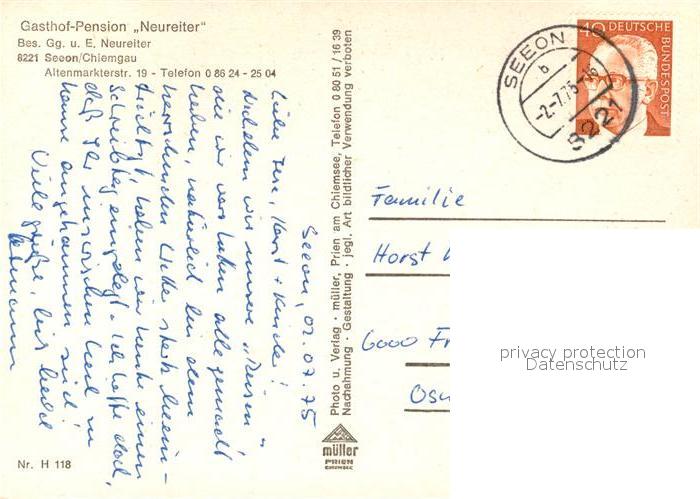 Gasthof-Pension „Neureiter"
Bes. Gg. u. E. Neureiter
8221 Seeon/Chiemgau
Altenmarkterstr. 19 - Telefon 0 86 24 - 25 04
Seeon, 02.07.75
Horst + Kinder!
Nachdem wir unsere „Reisen"
die wir vor hatten alle gemacht
haben, natürlich bei dem
herrschenden Wetter stark beein-
haben wir heute einen
Schreibtag eingelegt. Ich hoffe doch,
daß Ihr inzwischen heil zu
hause angekommen seid!
Viele Grüße,
Photo u. Verlag · müller, Prien am Chiemsee, Telefon 0 80 51 / 16 39
Nachahmung · Gestaltung · jegl. Art bildlicher Verwendung verboten
müller
PRIEN
CHIEMSEE
Nr. H 118
40 DEUTSCHE
BUNDESPOST
SEEON
b
-2.-7.75
8221
Familie
Horst
6000 Fr
privacy protection
Datenschutz